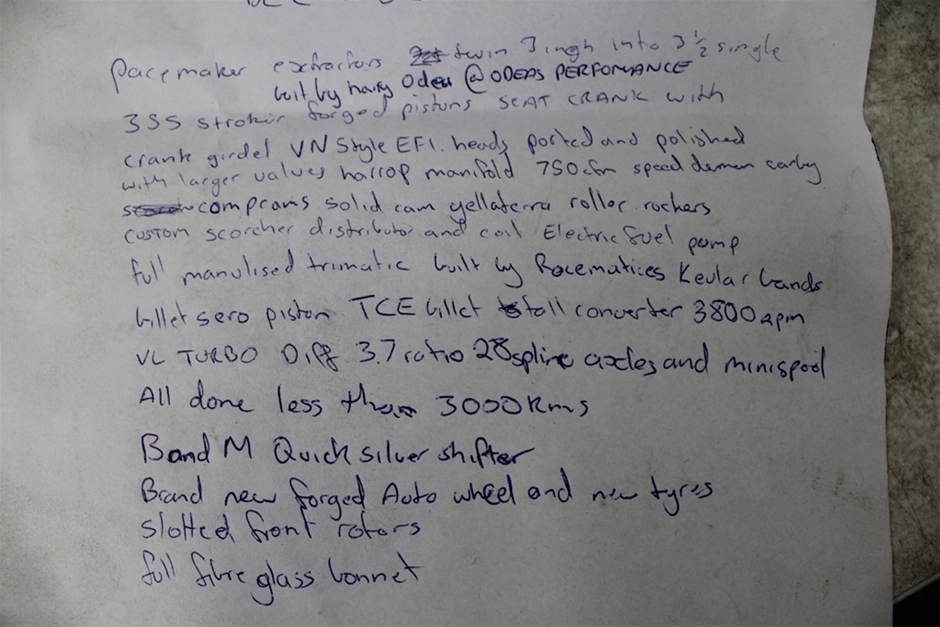 pacemaker extractors twin 3 ingh into 3 1/2 single
buit by harry Odea @ ODEAS PERFOMANCE
355 stroker forged pistons SCAT CRANK with
crank girdel VN Style EFI. heads ported and polished
with larger valves harrop manifold 750 cfm speed demon carby
compcams solid cam yellaterra roller rockers
custom scorcher distributor and coil Electric fuel pump
full manulised trimatic built by Racematices Kevlar bands
billet sero piston TCE billet stall converter 3800 rpm
VL TURBO Diff 3.7 ratio 28 spline axcles and minispool
All done less than 3000 kms
B and M Quick silver shifter
Brand new forged Auto wheel and new tyres
slotted front rotors
full fibreglass bonnet